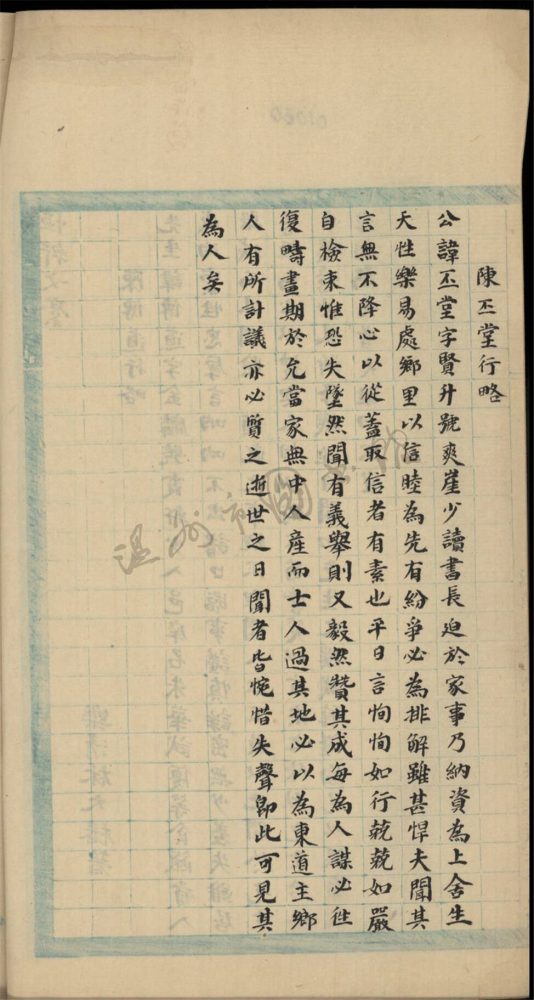 陳丕堂行略
公諱丕堂字賢升號爽崖少讀書長迫於家事乃納資為上舍生
天性樂易處鄉里以信睦為先有紛爭必為排解雖甚悍夫聞其
言無不降心以從蓋取信者有素也平日言恂恂如行兢兢如嚴
自檢束惟恐失墜然聞有義舉則又毅然贊其成每為人謀必往
復疇畫期於允當家無中人產而士人過其地必以為東道主鄉
人有所計議亦必質之逝世之日聞者皆惋惜失聲卽此可見其
為人矣
溫州市圖書館